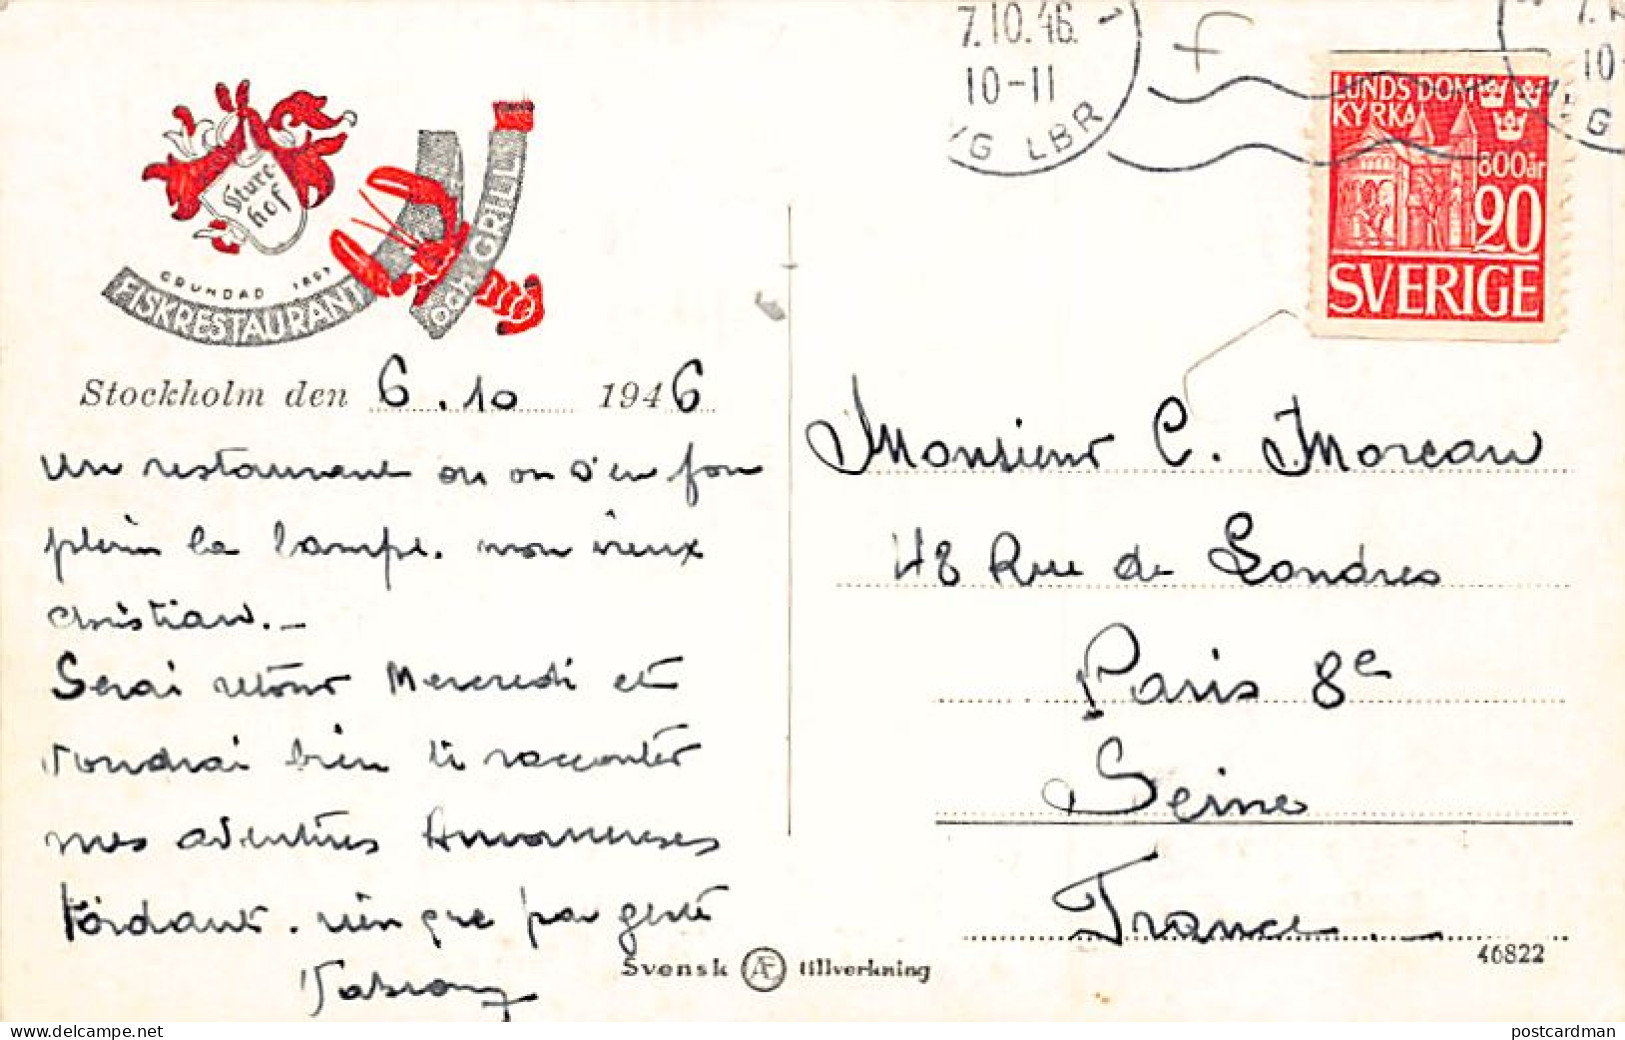 7.10.46.
10-11
LBR
LUNDS DOM
KYRKA
800 år
20
SVERIGE
Sture
hof
GRUNDAD 1897
FISKRESTAURANT
och GRILL
Stockholm den 6.10 1946
Un restaurant ou on s'en fou
plein la lampe. mon vieux
Christian._
Serai retour Mercredi et
voudrai bien te raconter
mes aventures Amoureuses
tordant. rien que par geste
Monsieur C. Moreau
48 Rue de Londres
Paris 8e
Seine
France._
Svensk Æ tillverkning
46822
postcards.delcampe.net
postcardman